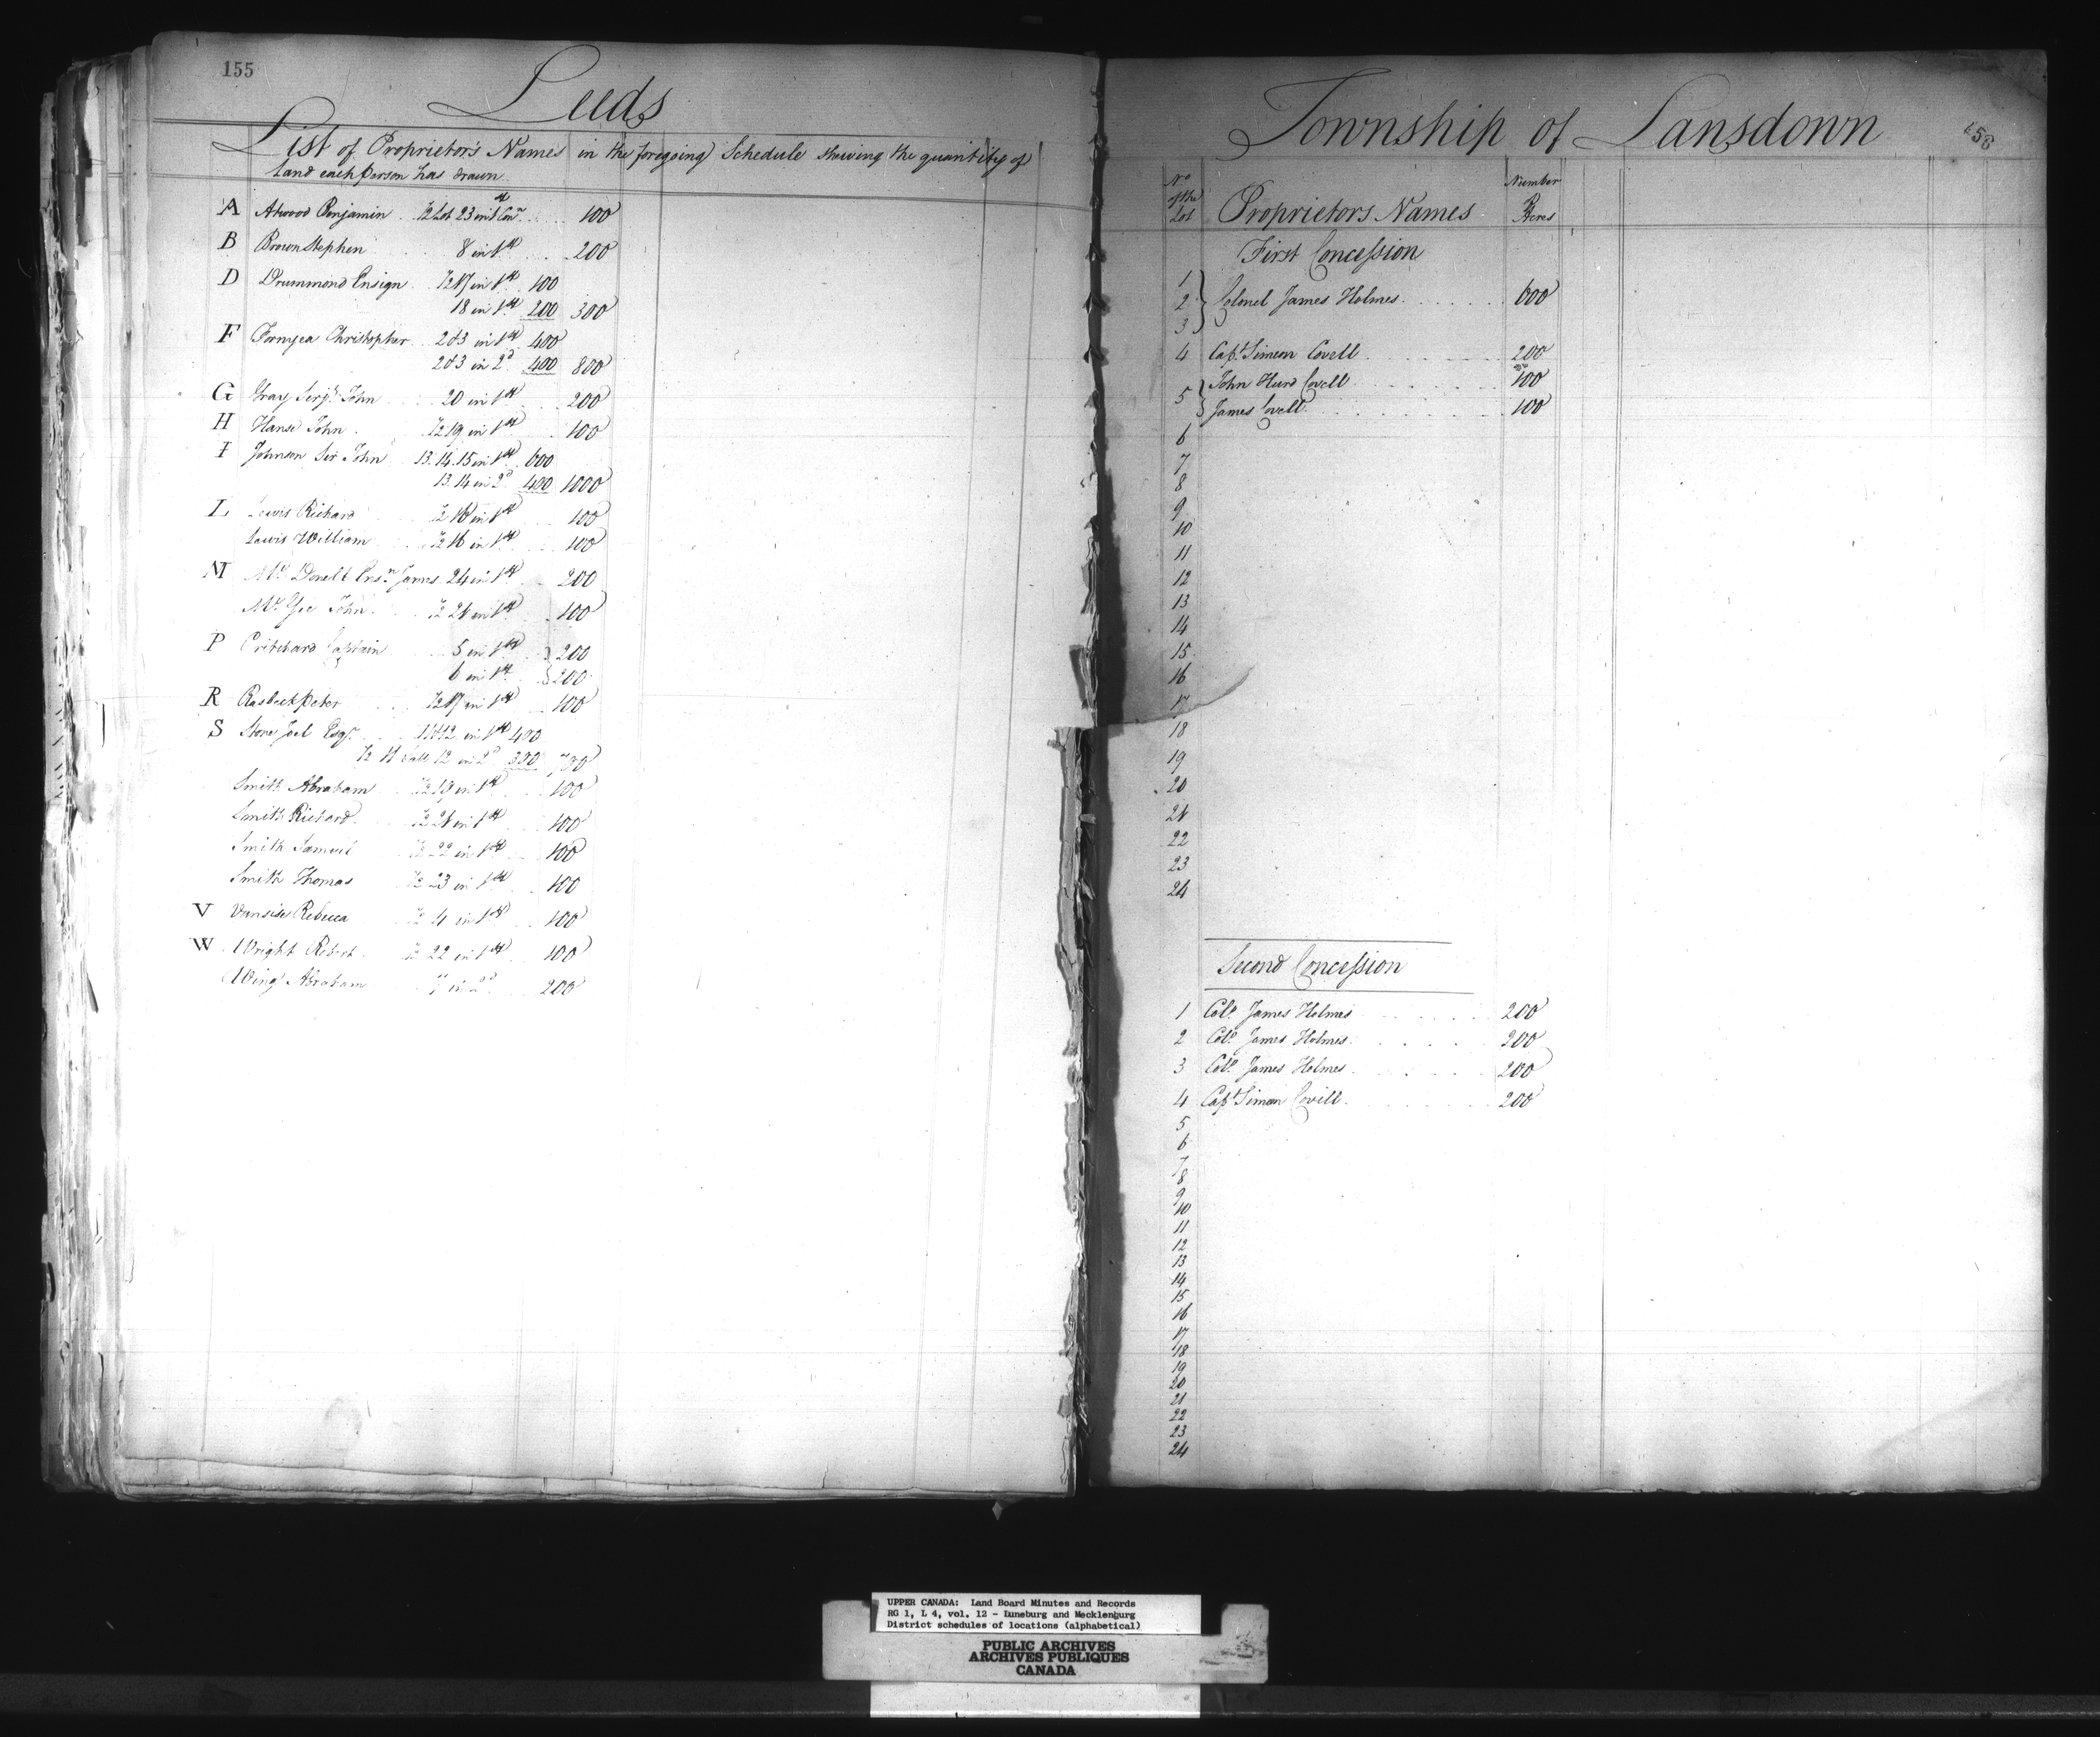 155
Leeds
List of Proprietor's Names in the foregoing Schedule shewing the quantity of
Land each Person has drawn
A Atwood Benjamin ½ Lot 23 in 1st Conn. 100
B Brown Stephen 8 in 1st 200
D Drummond Ensign ½ 17 in 1st 100
18 in 1st 200 300
F Formyea Christopher 2 & 3 in 1st 400
2 & 3 in 2d 400 800
G Gray Serjt. John 20 in 1st 200
H Hanse John ½ 19 in 1st 100
I Johnson Sir John 13. 14. 15 in 1st 600
13. 14 in 2d 400 1000
L Lewis Richard ½ 16 in 1st 100
Lewis William ½ 16 in 1st 100
M Mc. Donell Ensn. James 24 in 1st 200
Mc. Gee John ½ 21 in 1st 100
P Pritchard Captain 5 in 1st 200
6 in 1st 200
R Rasbeck Peter ½ 17 in 1st 100
S Stone Joel Esqr. 11 & 12 in 1st 400
½ 11 & all 12 in 2d 300 700
Smith Abraham ½ 19 in 1st 100
Smith Richard ½ 21 in 1st 100
Smith Samuel ½ 22 in 1st 100
Smith Thomas ½ 23 in 1st 100
V Vansise Rebecca ½ 4 in 1st 100
W Wright Robert ½ 22 in 1st 100
Wing Abraham 7 in 2d 200
Township of Lansdown
No. of the Lot Proprietors Names Number of Acres
First Concession
1
2 Colonel James Holmes 600
3
4 Capt. Simeon Covell 200
5 John Hurd Covell 100
James Covell 100
6
7
8
9
10
11
12
13
14
15
16
17
18
19
20
21
22
23
24
Second Concession
1 Colo. James Holmes 200
2 Colo. James Holmes 200
3 Colo. James Holmes 200
4 Capt. Simeon Covill 200
5
6
7
8
9
10
11
12
13
14
15
16
17
18
19
20
21
22
23
24
UPPER CANADA: Land Board Minutes and Records
RG 1, L 4, vol. 12 - Luneburg and Mecklenburg
District schedules of locations (alphabetical)
PUBLIC ARCHIVES
ARCHIVES PUBLIQUES
CANADA